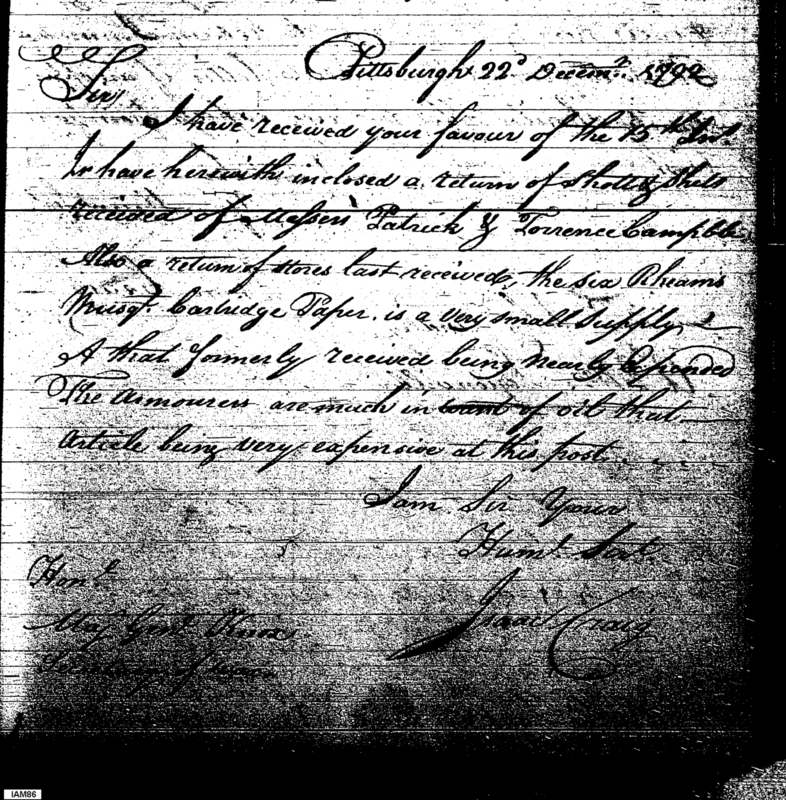 Pittsburgh 22d Decemr. 1792
Sir
I have received your favour of the 15th Inst.
& have herewith inclosed a return of Shott & Shels
received of Messrs Patrick & Torrence Campble
Also a return of stores last received, the six Rheams
Musqt. Cartridge Paper, is a very small supply
& that formerly received being nearly Expended
The Armourers are much in want of oil that
Article being very expensive at this post
I am Sir Your
Humbl. Servt.
Isaac Craig
Honle
Maj Genl Knox
Secretary of War
IAM86